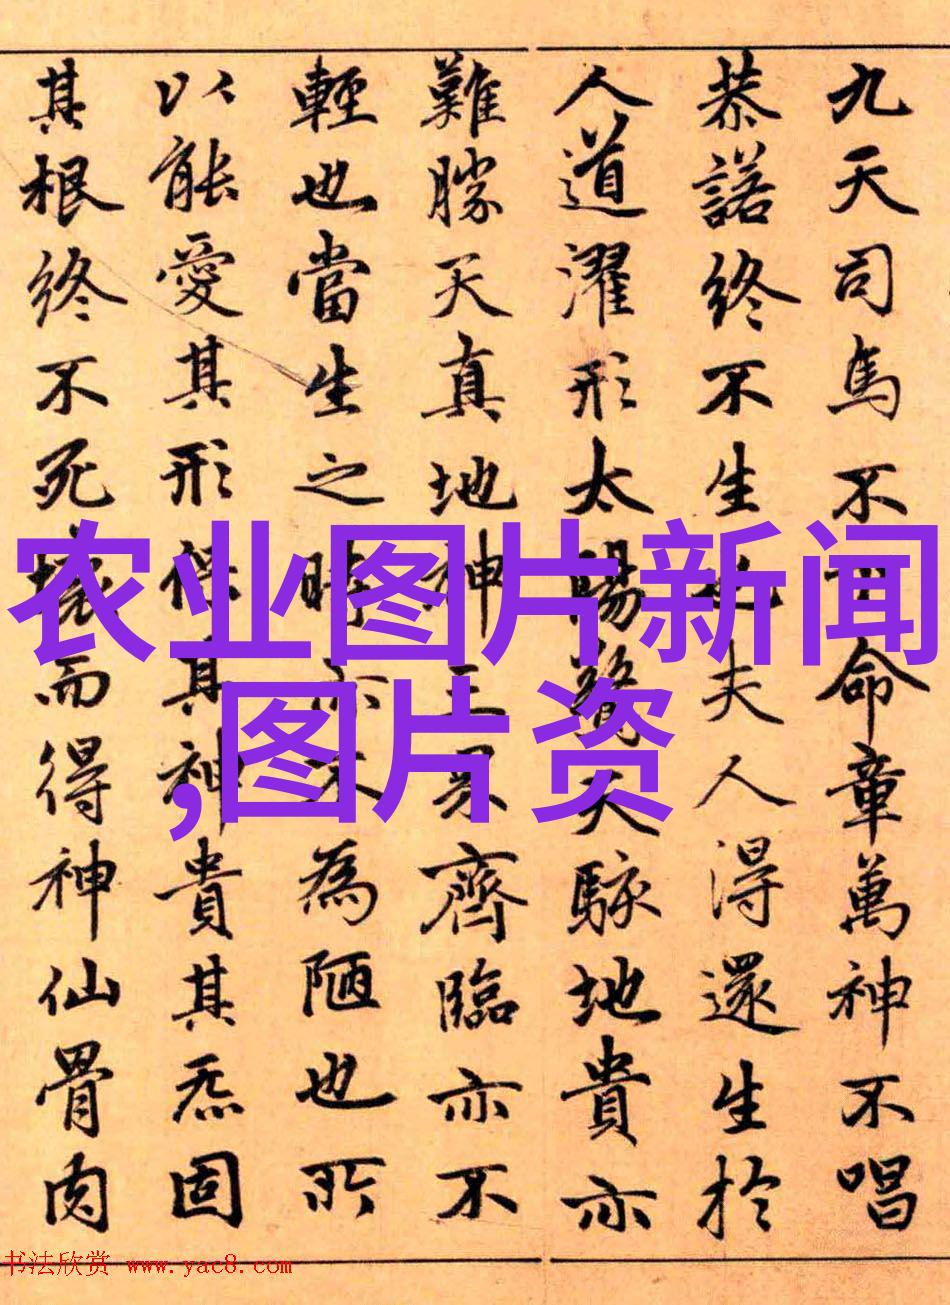 九天司馬不命章萬神不唱
恭諾終不生也夫人得還生於
人道濯形太陽驚天駭地貴亦
難勝天真地神三界齊臨亦不
輕也當生之時亦不為陋也所
以能愛其形保其神貴其炁固
其根終不死壞而得神仙骨肉
农业图片新闻
,图片资
书法欣赏 www.yac8.com